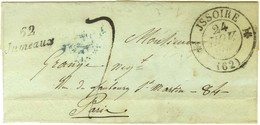 62
Jumeaux
ISSOIRE
24
(62)
Monsieur
Grange négt
Rue du faubourg St Martin - 84 -
Paris